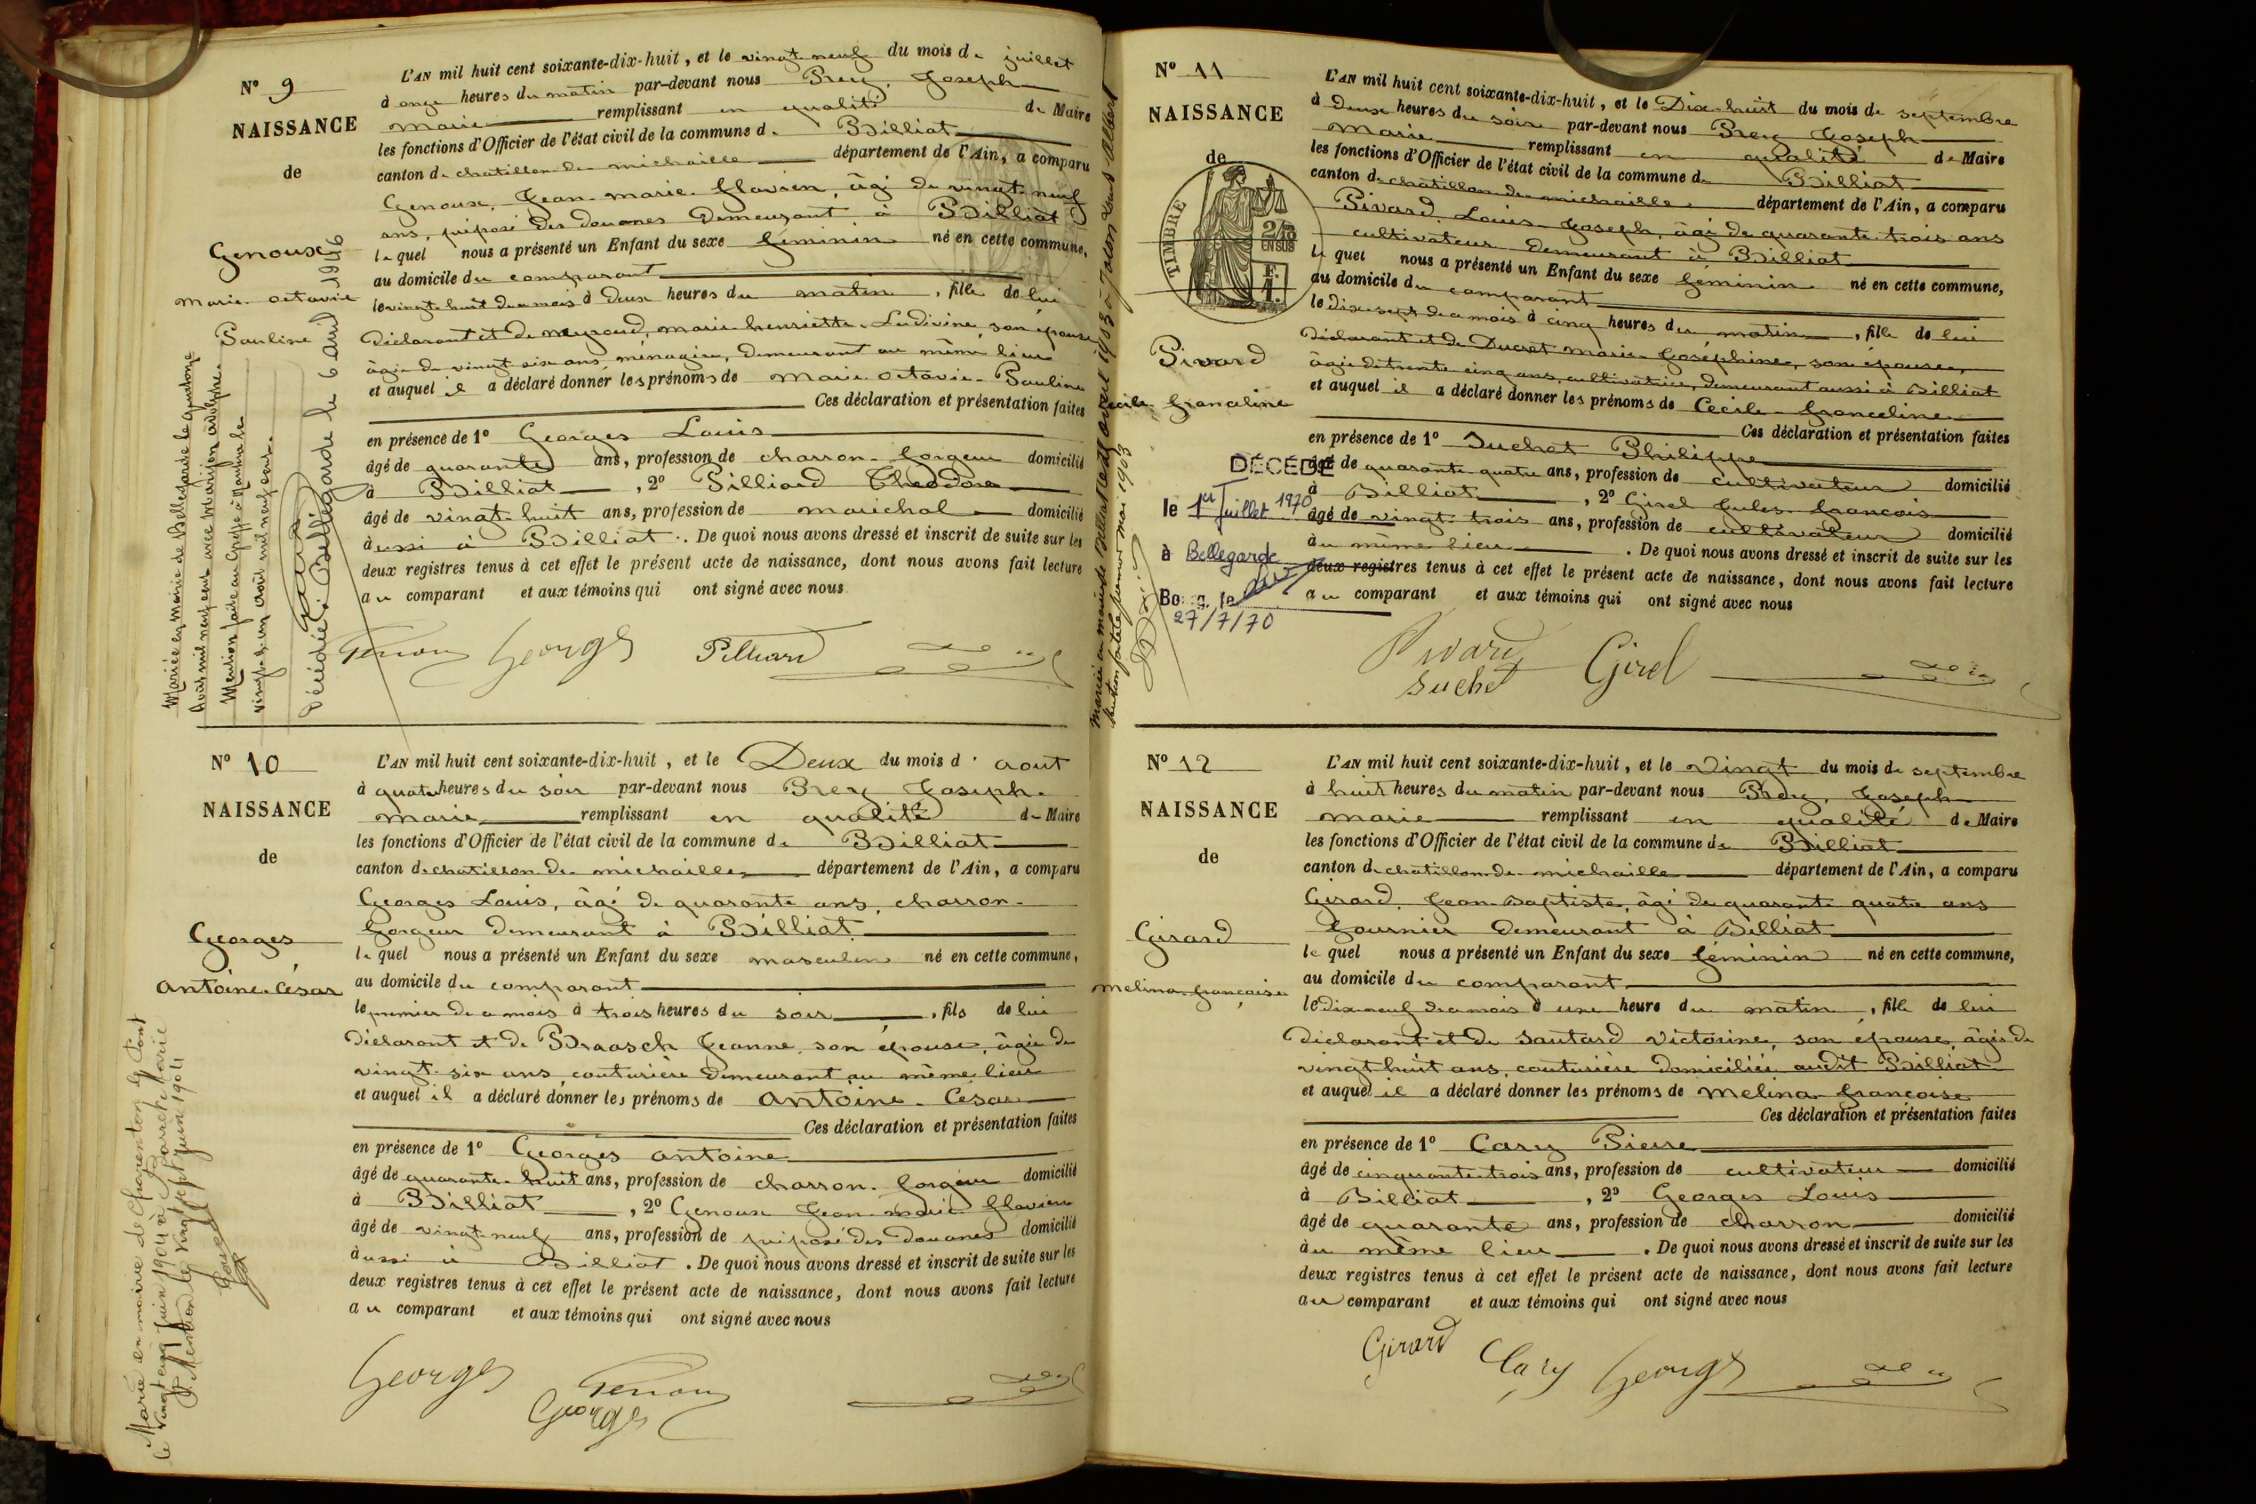 N° 9
NAISSANCE
de
Genoux
Marie octavie
Pauline
Mariée en mairie de Bellegarde le quatorze
Août mil neuf cent avec Marjon adolphe.
Mention faite au Greffe à Nantua le
vingt un août mil neuf cent.
Décédée à Bellegarde le 6 avril 1946
L'AN mil huit cent soixante-dix-huit, et le vingt neuf du mois de juillet
à onze heures du matin par-devant nous Prery, Joseph
marie remplissant en qualité de Maire
les fonctions d'Officier de l'état civil de la commune de Billiat
canton de chatillon de michaille département de l'Ain, a comparu
Genoux, Jean-marie flavien, âgé de vingt-neuf
ans, préposé des douanes Demeurant à Billiat
lequel nous a présenté un Enfant du sexe féminin né en cette commune,
au domicile du comparant
le vingt huit du mois à Deux heures du matin, fille de lui
Déclarant et de meyraud, marie henriette Ludivine, son épouse
âgée de vingt six ans ménagère, demeurant au même lieu
et auquel il a déclaré donner les prénoms de Marie octavie Pauline
Ces déclaration et présentation faites
en présence de 1° Georges Louis
âgé de quarante ans, profession de charron-forgeur domicilié
à Billiat, 2° Pilliard Théodore
âgé de vingt-huit ans, profession de maréchal domicilié
aussi à Billiat. De quoi nous avons dressé et inscrit de suite sur les
deux registres tenus à cet effet le présent acte de naissance, dont nous avons fait lecture
au comparant et aux témoins qui ont signé avec nous
Genoux Georges Pilliard
N° 10
NAISSANCE
de
Georges
Antoine César
Marié en mairie de Charenton le Pont
le vingt cinq Juin 1904 à
Mention le vingt sept juin 1904
L'AN mil huit cent soixante-dix-huit, et le Deux du mois d'aout
à quatre heures du soir par-devant nous Prery Joseph
marie remplissant en qualité de Maire
les fonctions d'Officier de l'état civil de la commune de Billiat
canton de chatillon de michaille département de l'Ain, a comparu
Georges Louis, âgé de quarante ans, charron-
forgeur Demeurant à Billiat
lequel nous a présenté un Enfant du sexe masculin né en cette commune,
au domicile du comparant
le premier de ce mois à trois heures du soir, fils de lui
Déclarant et de Braasch Jeanne, son épouse, âgée de
vingt-six ans, couturière Demeurant au même lieu
et auquel il a déclaré donner les prénoms de Antoine César
Ces déclaration et présentation faites
en présence de 1° Georges Antoine
âgé de quarante-huit ans, profession de charron-forgeur domicilié
à Billiat, 2° Genoux Jean-marie flavien
âgé de vingt-neuf ans, profession de préposé des Douanes domicilié
aussi à Billiat. De quoi nous avons dressé et inscrit de suite sur les
deux registres tenus à cet effet le présent acte de naissance, dont nous avons fait lecture
au comparant et aux témoins qui ont signé avec nous
Georges Genoux
Georges
N° 11
NAISSANCE
de
TIMBRE
2/10
EN SUS
F.
1.
Pivard
Cécile françeline
Mariée en mairie de Billiat le avril 1903 à Jolson Louis Albert
Mention faite le premier mai 1903
DÉCÉDÉ
le 1er Juillet 1970
à Bellegarde
Bourg, le
27/7/70
L'AN mil huit cent soixante-dix-huit, et le Dix-huit du mois de septembre
à deux heures du soir par-devant nous Prery Joseph
Marie remplissant en qualité de Maire
les fonctions d'Officier de l'état civil de la commune de Billiat
canton de chatillon de michaille département de l'Ain, a comparu
Pivard Louis Joseph, âgé de quarante trois ans
cultivateur demeurant à Billiat
lequel nous a présenté un Enfant du sexe féminin né en cette commune,
au domicile du comparant
le dix-sept de ce mois à cinq heures du matin, fille de lui
Déclarant et de Ducret marie Joséphine, son épouse,
âgée de trente cinq ans, cultivatrice, demeurant aussi à Billiat
et auquel il a déclaré donner les prénoms de Cecile françeline
Ces déclaration et présentation faites
en présence de 1° Suchet Philippe
âgé de quarante quatre ans, profession de cultivateur domicilié
à Billiat, 2° Girel Jules françois
âgé de vingt-trois ans, profession de cultivateur domicilié
au même lieu. De quoi nous avons dressé et inscrit de suite sur les
deux registres tenus à cet effet le présent acte de naissance, dont nous avons fait lecture
au comparant et aux témoins qui ont signé avec nous
Pivard Girel
Suchet
N° 12
NAISSANCE
de
Girard
melina françoise
L'AN mil huit cent soixante-dix-huit, et le Vingt du mois de septembre
à huit heures du matin par-devant nous Prery, Joseph
marie remplissant en qualité de Maire
les fonctions d'Officier de l'état civil de la commune de Billiat
canton de chatillon de michaille département de l'Ain, a comparu
Girard, Jean-Baptiste, âgé de quarante quatre ans
fournier Demeurant à Billiat
lequel nous a présenté un Enfant du sexe féminin né en cette commune,
au domicile du comparant
le dix neuf de ce mois à une heure du matin, fille de lui
Déclarant et de Santard Victorine, son épouse, âgée de
vingt huit ans, couturière Domiciliée audit Billiat
et auquel il a déclaré donner les prénoms de Melina françoise
Ces déclaration et présentation faites
en présence de 1° Cary Pierre
âgé de cinquante-trois ans, profession de cultivateur domicilié
à Billiat, 2° Georges Louis
âgé de quarante ans, profession de charron domicilié
au même lieu. De quoi nous avons dressé et inscrit de suite sur les
deux registres tenus à cet effet le présent acte de naissance, dont nous avons fait lecture
au comparant et aux témoins qui ont signé avec nous
Girard Cary Georges